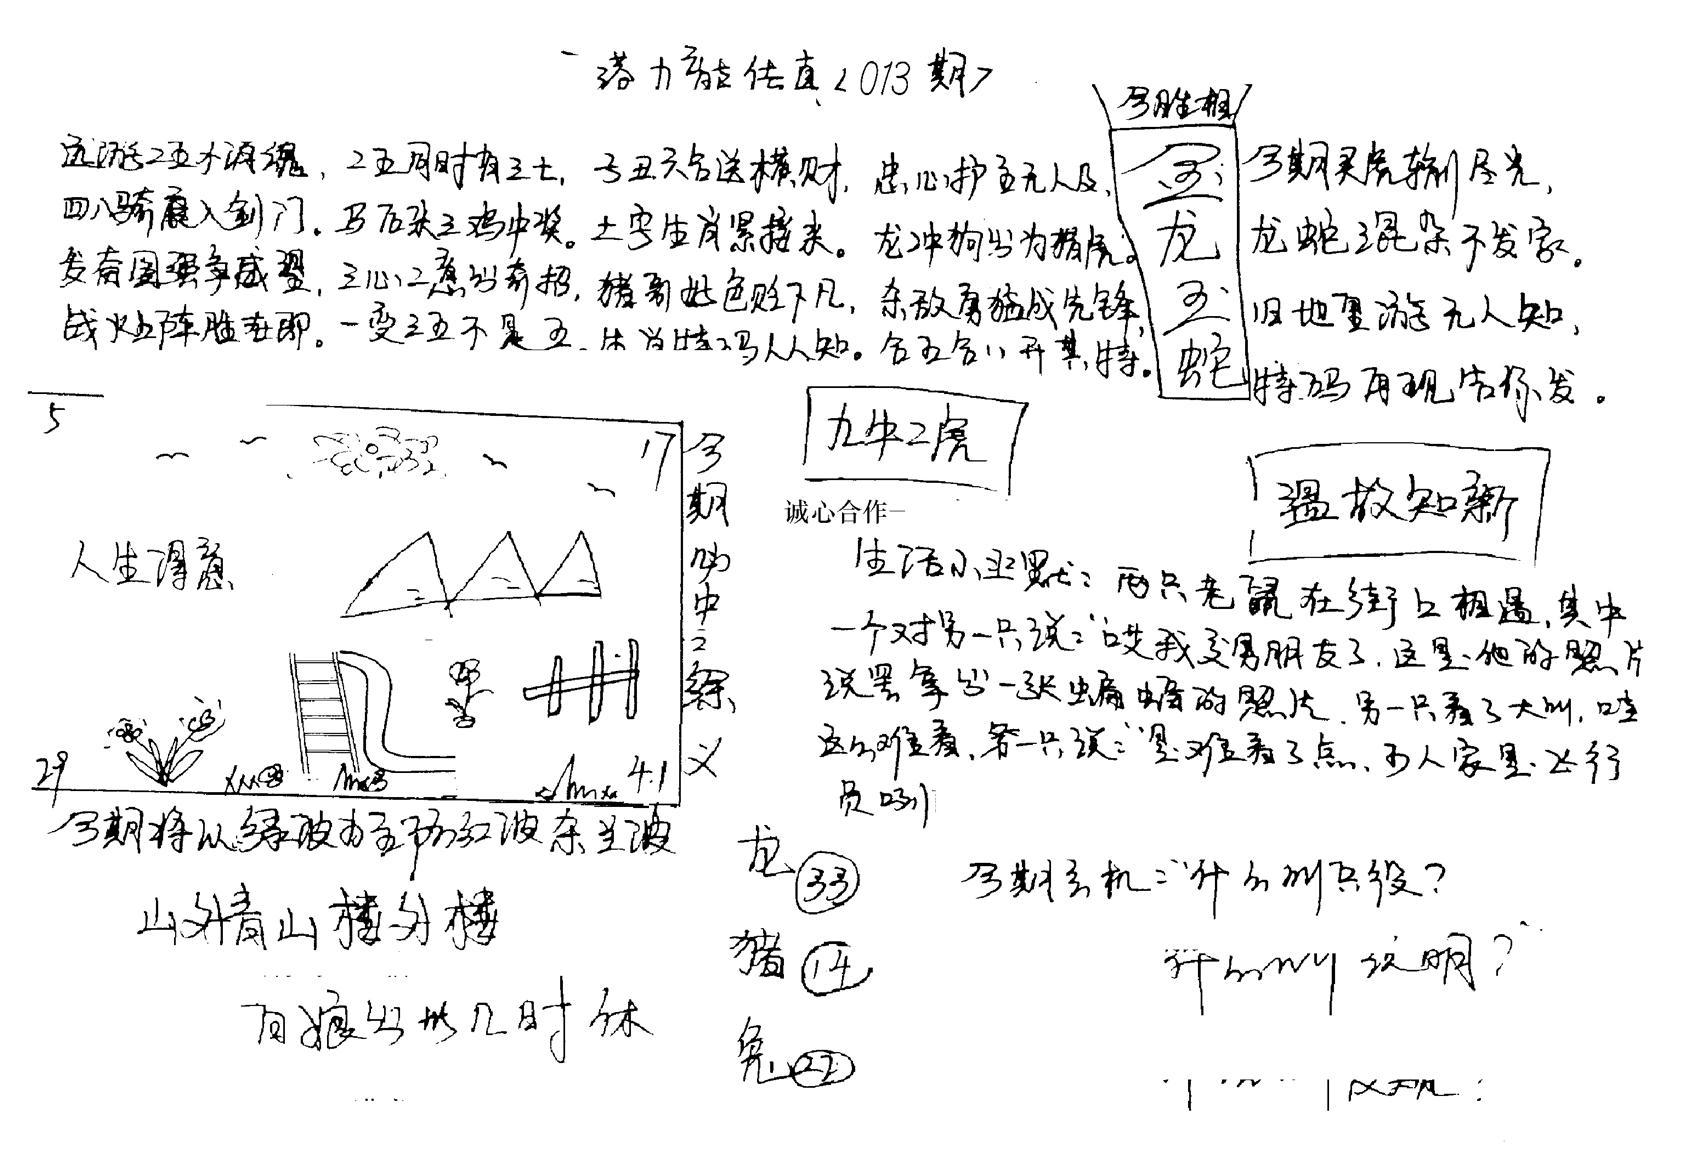 潜力能传真<013期>
今胜相
金龙玉蛇
远游二五不同魂，二五同时有三七，子丑六合送横财，忠心护主无人及，
四八骑 入剑门。马后 三鸡中奖。土字生肖紧接来。龙冲狗出为猪虎。
发奋图强争威望，三心二意出奇招，猪哥好色贬下凡，杀敌勇猛成先锋，
战火 阵胜在即。一变三五不是五， 特码人人知。合五合八开其特。
今期买虎输尽光，
龙蛇混杂不发家。
旧地重游无人知，
特码再现告你发。
5
17
人生得意
29
41
今期 中之 义
九牛二虎
诚心合作
温故知新
生活小幽默：两只老鼠在街上相遇，其中
一个对另一只说：“哎我交男朋友了，这是他的照片
说罢拿出一张蝙蝠的照片，另一只看了大叫，哇
这么难看，第一只说：“是难看了点，可人家是飞行
员咧
今期将以绿波为主防红波杀兰波
山外青山楼外楼
百娘出 几时休
龙 33
猪 14
兔 22
今期玄机：“什么叫只段？
什么叫说明？